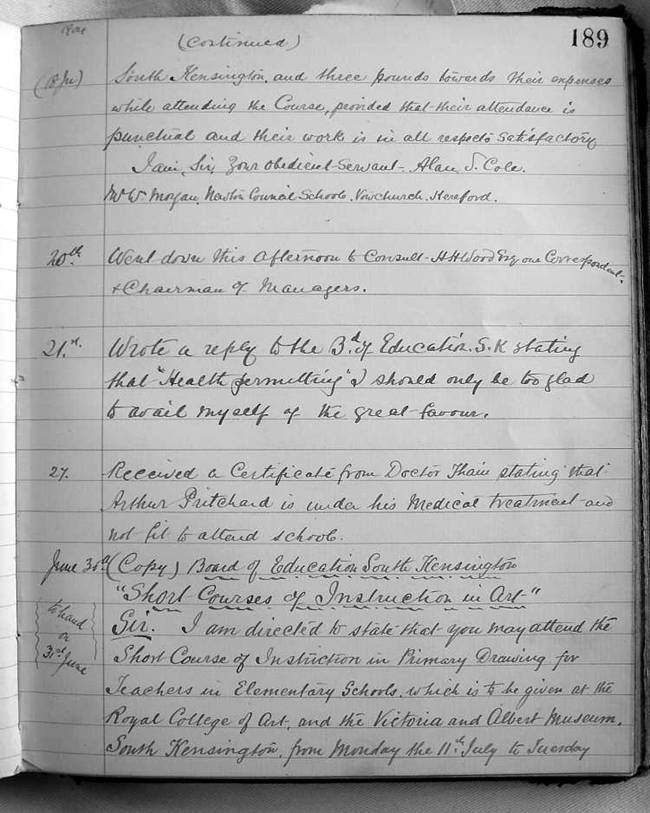 (Continued) 189
South Kensington, and three pounds towards their expenses
while attending the Course, provided that their attendance is
punctual and their work is in all respects satisfactory
I am, Sir, Your obedient Servant. Alan S. Cole.
Mr W. Morgan, Newton Council Schools, Vowchurch. Hereford.
20th. Went down this afternoon to Consult H H Wood Esq our Correspondent
& Chairman of Managers.
21st. Wrote a reply to the Bd. of Education. S.K stating
that "Health permitting" I should only be too glad
to avail myself of the great favour.
27. Received a Certificate from Doctor Thain stating that
Arthur Pritchard is under his Medical treatment and
not fit to attend schools.
June 30th (Copy) Board of Education South Kensington
"Short Courses of Instruction in Art"
to hand
on
31st June
Sir. I am directed to state that you may attend the
Short Course of Instruction in Primary Drawing for
Teachers in Elementary Schools, which is to be given at the
Royal College of Art, and the Victoria and Albert Museum.
South Kensington, from Monday the 11th July to Tuesday